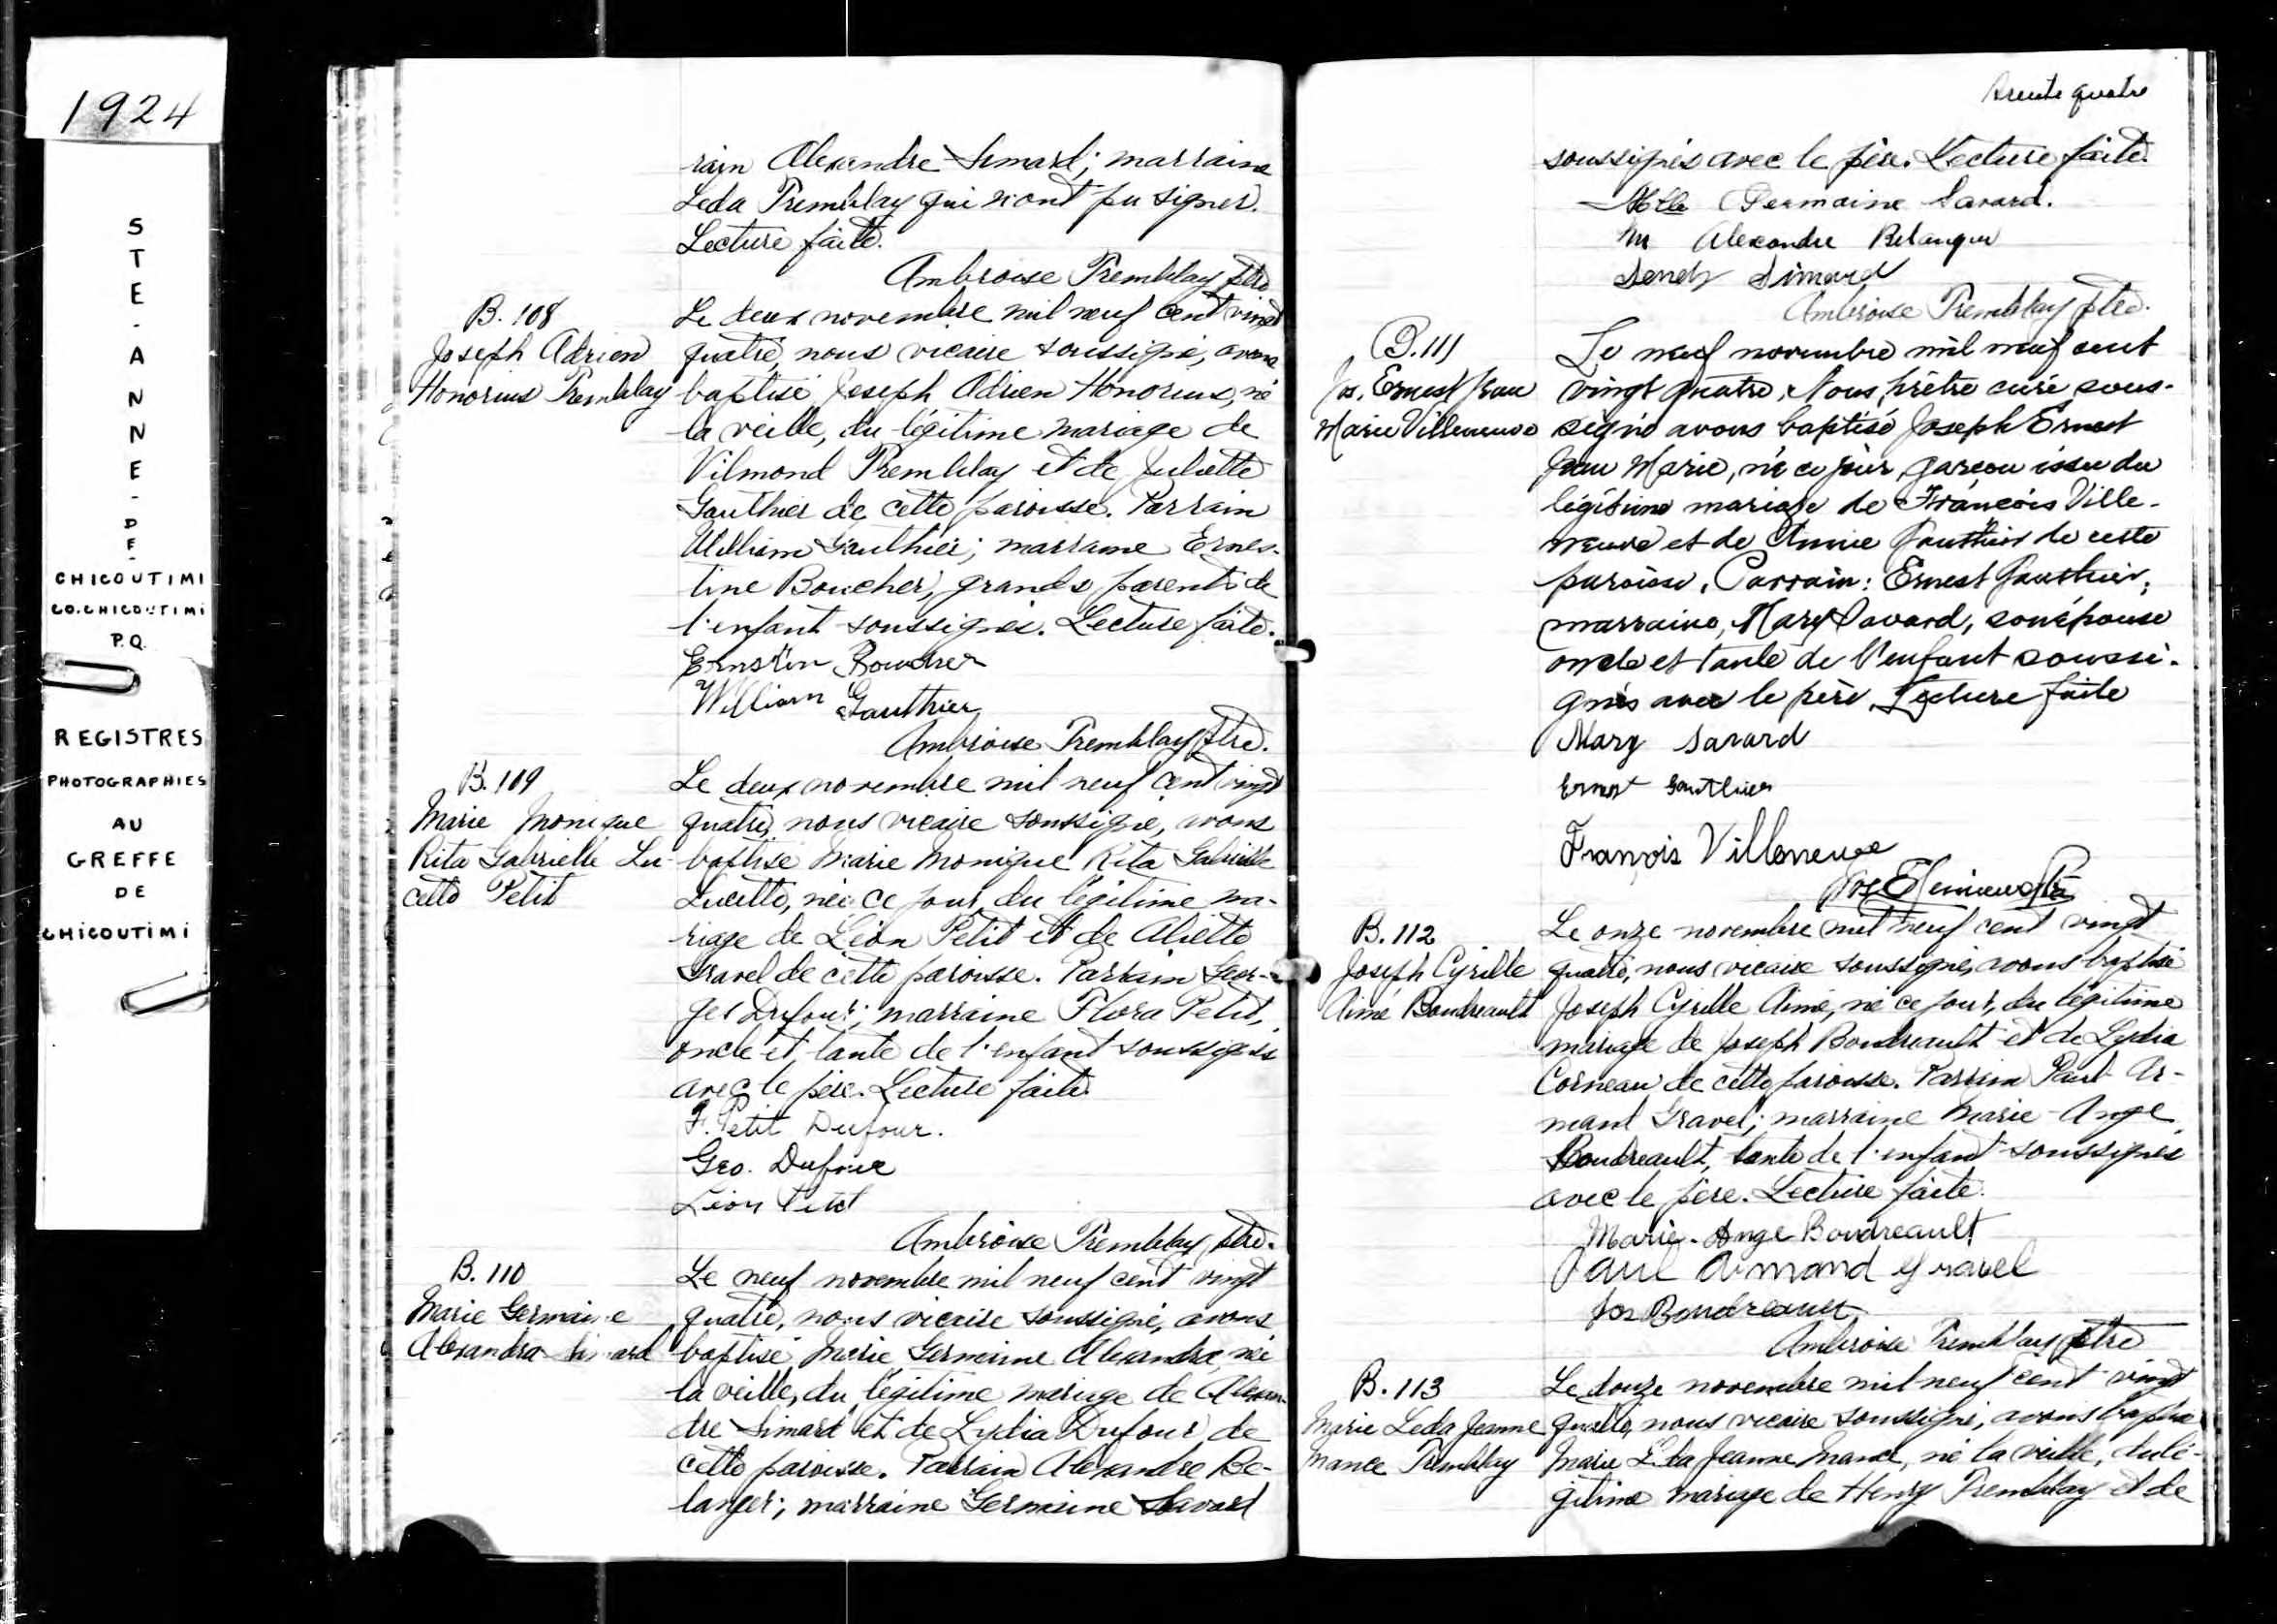 1924
STE-ANNE-DE-
CHICOUTIMI
CO. CHICOUTIMI
P.Q.
REGISTRES
PHOTOGRAPHIES
AU
GREFFE
DE
CHICOUTIMI
rain Alexandre Simard; marraine
Leda Tremblay qui n'ont pu signer.
Lecture faite.
Ambroise Tremblay ptre
B. 108
Joseph Adrien
Honorius Tremblay
Le deux novembre mil neuf cent vingt
quatre, nous vicaire soussigné, avons
baptisé Joseph Adrien Honorius, né
la veille, du légitime mariage de
Vilmond Tremblay et de Juliette
Gauthier de cette paroisse. Parrain
William Gauthier; marraine Ernes-
tine Boucher, grands parents de
l'enfant soussignés. Lecture faite.
Ernstin Boucher
William Gauthier
Ambroise Tremblay ptre.
B. 109
Marie Monique
Rita Gabrielle Lu-
cette Petit
Le deux novembre mil neuf cent vingt
quatre, nous vicaire soussigné, avons
baptisé Marie Monique Rita Gabrielle
Lucette, née ce jour, du légitime ma-
riage de Léon Petit et de Aliette
Gravel de cette paroisse. Parrain Geor-
ges Dufour; marraine Flora Petit,
oncle et tante de l'enfant soussignés
avec le père. Lecture faite.
F. Petit Dufour.
Geo. Dufour
Léon Petit
Ambroise Tremblay ptre.
B. 110
Marie Germaine
Alexandra Simard
Le neuf novembre mil neuf cent vingt
quatre, nous vicaire soussigné, avons
baptisé Marie Germaine Alexandra, née
la veille, du légitime mariage de Alexan-
dre Simard et de Lydia Dufour, de
cette paroisse. Parrain Alexandre Be-
langer; marraine Germaine Savard
trente quatre
soussignés avec le père. Lecture faite.
Mlle Germaine Savard.
M Alexandre Belanger
Simard
Ambroise Tremblay ptre.
B. 111
Jos. Ernest Jean
Marie Villeneuve
Le neuf novembre mil neuf cent
vingt quatre, Nous, prêtre curé sous-
signé avons baptisé Joseph Ernest
Jean Marie, né ce jour, garçon issu du
légitime mariage de François Ville-
neuve et de Annie Gauthier de cette
paroisse. Parrain: Ernest Gauthier;
marraine, Mary Savard, son épouse
oncle et tante de l'enfant soussi-
gnés avec le père. Lecture faite
Mary Savard
Ernest Gauthier
François Villeneuve
B. 112
Joseph Cyrille
Aimé Boudreault
Le onze novembre mil neuf cent vingt
quatre, nous vicaire soussigné, avons baptisé
Joseph Cyrille Aimé, né ce jour, du légitime
mariage de Joseph Boudreault et de Lydia
Corneau de cette paroisse. Parrain Paul-Ar-
mand Gravel; marraine Marie-Ange
Boudreault, tante de l'enfant soussignés
avec le père. Lecture faite.
Marie-Ange Boudreault
Paul Armand Gravel
Jos Boudreault
Ambroise Tremblay ptre
B. 113
Marie Leda Jeanne
Mance Tremblay
Le douze novembre mil neuf cent vingt
quatre, nous vicaire soussigné, avons baptisé
Marie Leda Jeanne Mance, né la veille, du lé-
gitime mariage de Henry Tremblay et de